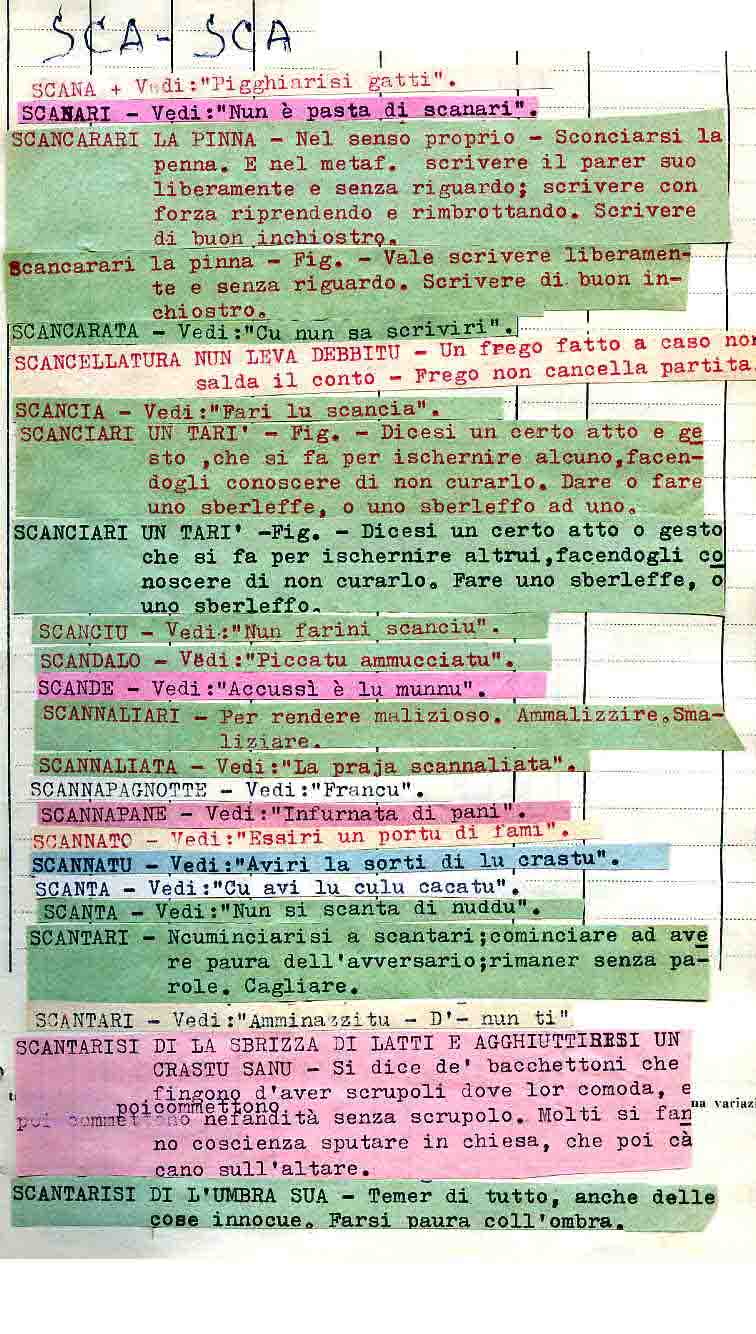 SCA - SCA
SCANA + Vedi:"Pigghiarisi gatti".
SCANARI - Vedi:"Nun è pasta di scanari".
SCANCARARI LA PINNA - Nel senso proprio - Sconciarsi la
penna. E nel metaf. scrivere il parer suo
liberamente e senza riguardo; scrivere con
forza riprendendo e rimbrottando. Scrivere
di buon inchiostro.
Scancarari la pinna - Fig. - Vale scrivere liberamen-
te e senza riguardo. Scrivere di buon in-
chiostro.
SCANCARATA - Vedi:"Cu nun sa scriviri".
SCANCELLATURA NUN LEVA DEBBITU - Un frego fatto a caso non
salda il conto - Frego non cancella partita.
SCANCIA - Vedi:"Fari lu scancia".
SCANCIARI UN TARI' - Fig. - Dicesi un certo atto e ge
sto ,che si fa per ischernire alcuno,facen-
dogli conoscere di non curarlo. Dare o fare
uno sberleffe, o uno sberleffo ad uno.
SCANCIARI UN TARI' -Fig. - Dicesi un certo atto o gesto
che si fa per ischernire altrui,facendogli co
noscere di non curarlo. Fare uno sberleffe, o
uno sberleffo.
SCANCIU - Vedi:"Nun farini scanciu".
SCANDALO - Vedi:"Piccatu ammucciatu".
SCANDE - Vedi:"Accussì è lu munnu".
SCANNALIARI - Per rendere malizioso. Ammalizzire.Sma-
liziare.
SCANNALIATA - Vedi:"La praja scannaliata".
SCANNAPAGNOTTE - Vedi:"Francu".
SCANNAPANE - Vedi:"Infurnata di pani".
SCANNATO - Vedi:"Essiri un portu di fami".
SCANNATU - Vedi:"Aviri la sorti di lu crastu".
SCANTA - Vedi:"Cu avi lu culu cacatu".
SCANTA - Vedi:"Nun si scanta di nuddu".
SCANTARI - Ncuminciarisi a scantari;cominciare ad ave
re paura dell'avversario;rimaner senza pa-
role. Cagliare.
SCANTARI - Vedi:"Amminazzitu - D'- nun ti"
SCANTARISI DI LA SBRIZZA DI LATTI E AGGHIUTTIRISI UN
CRASTU SANU - Si dice de' bacchettoni che
fingono d'aver scrupoli dove lor comoda, e
poi commettono nefandità senza scrupolo. Molti si fan
na variazi
no coscienza sputare in chiesa, che poi cà
cano sull'altare.
SCANTARISI DI L'UMBRA SUA - Temer di tutto, anche delle
cose innocue. Farsi paura coll'ombra.